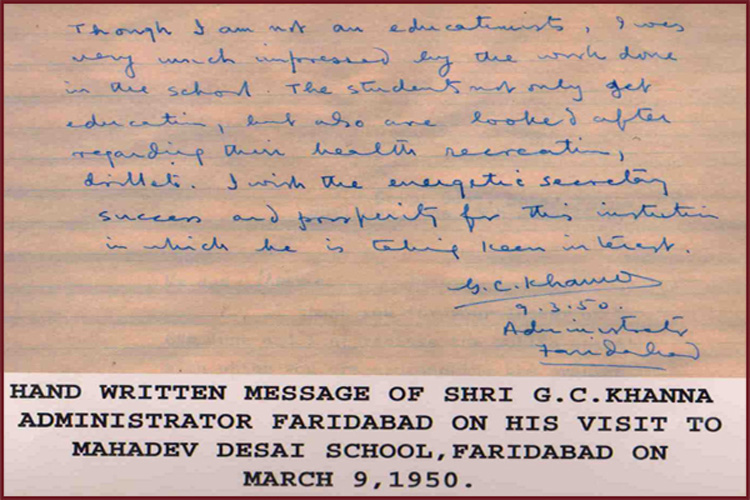 Though I am not an educationists, I was
very much impressed by the work done
in the school. The students not only get
education, but also are looked after
regarding their health recreation,
drill etc. I wish the energetic secretary
success and prosperity for this institution
in which he is taking keen interest.
G.C. Khanna
9.3.50.
Administrator
Faridabad
HAND WRITTEN MESSAGE OF SHRI G.C.KHANNA
ADMINISTRATOR FARIDABAD ON HIS VISIT TO
MAHADEV DESAI SCHOOL,FARIDABAD ON
MARCH 9,1950.